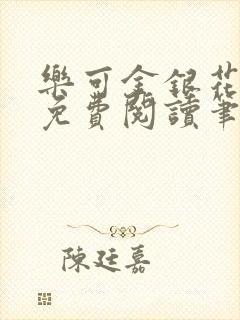 樂可金銀花
免費閱讀筆
陳廷嘉